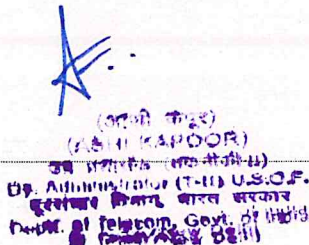 (आशी कपूर)
(ASHI KAPOOR)
उप प्रशासक
Dy. Administrator (T-II) U.S.O.F.
दूरसंचार विभाग, भारत सरकार
Deptt. of Telecom, Govt. of India